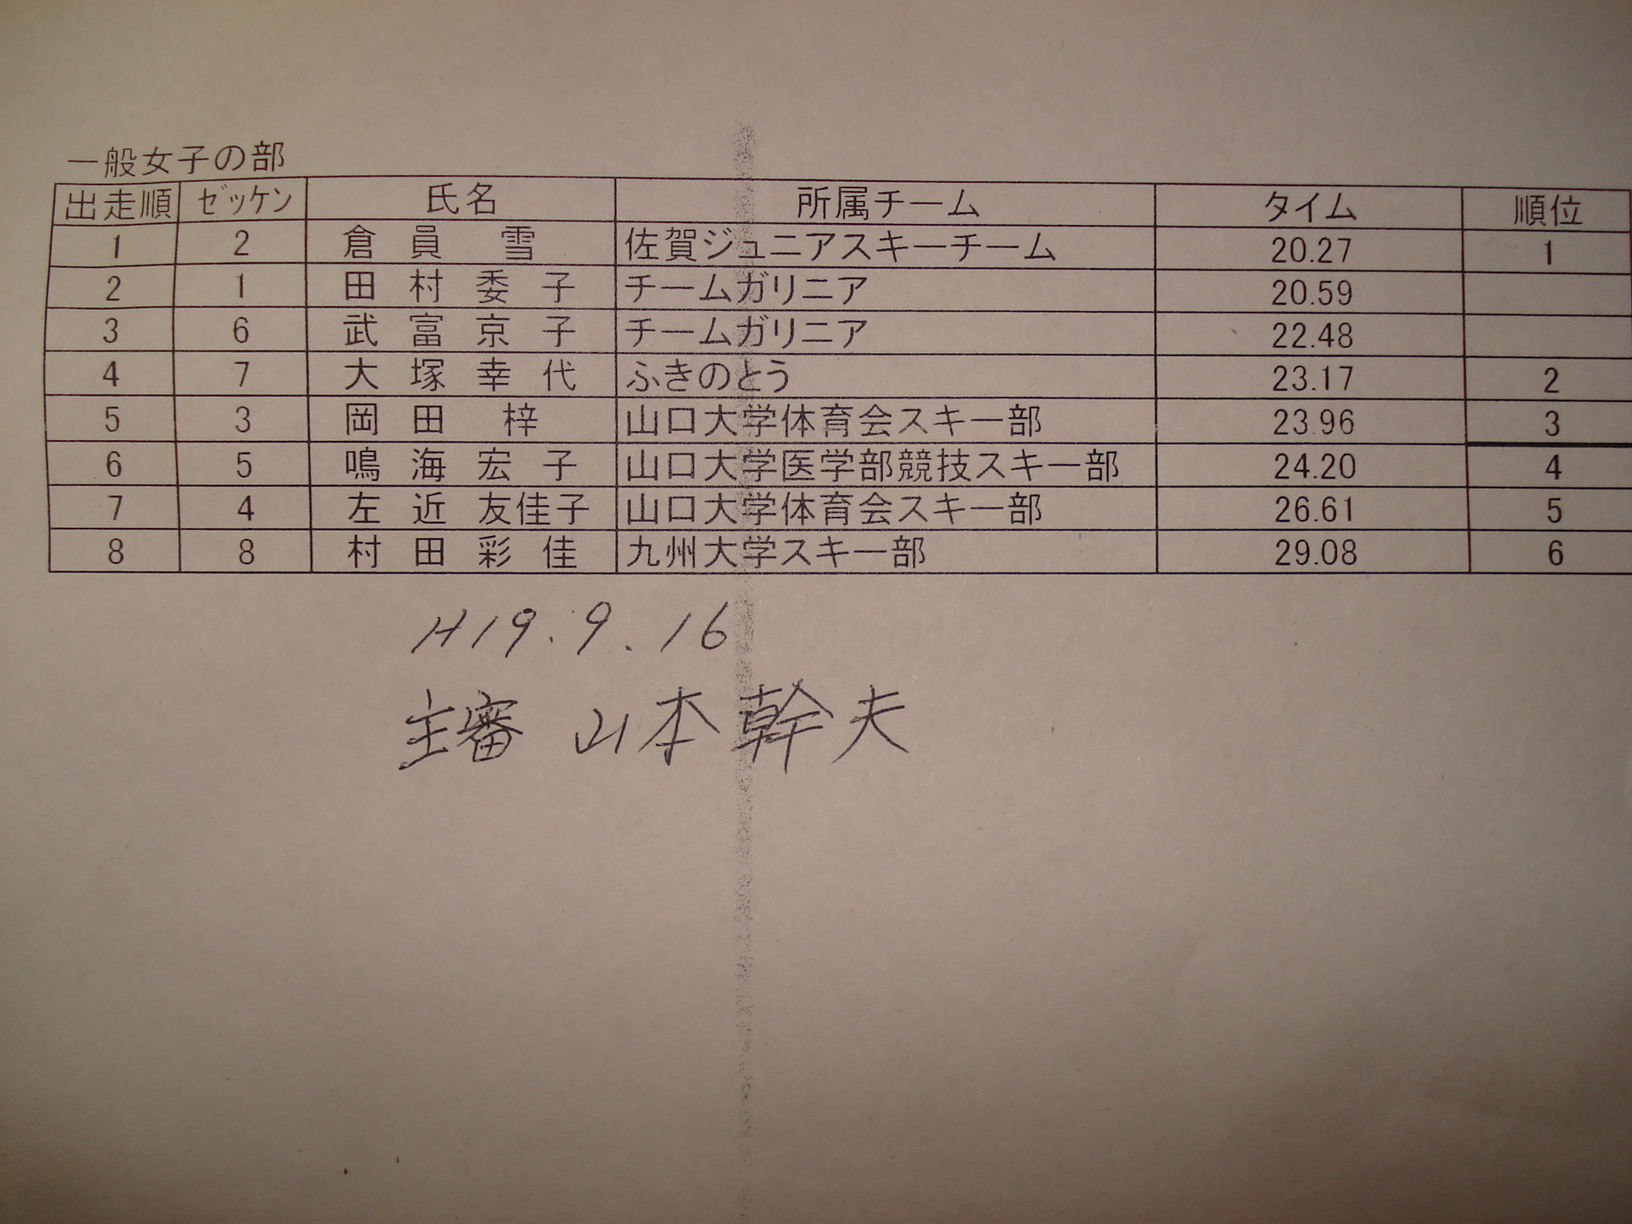 一般女子の部
出走順 ｾﾞｯｹﾝ 氏名 所属チーム タイム 順位
1 2 倉員 雪 佐賀ジュニアスキーチーム 20.27 1
2 1 田村委子 チームガリニア 20.59
3 6 武富京子 チームガリニア 22.48
4 7 大塚幸代 ふきのとう 23.17 2
5 3 岡田 梓 山口大学体育会スキー部 23.96 3
6 5 鳴海宏子 山口大学医学部競技スキー部 24.20 4
7 4 左近友佳子 山口大学体育会スキー部 26.61 5
8 8 村田彩佳 九州大学スキー部 29.08 6
H19.9.16
主審 山本幹夫